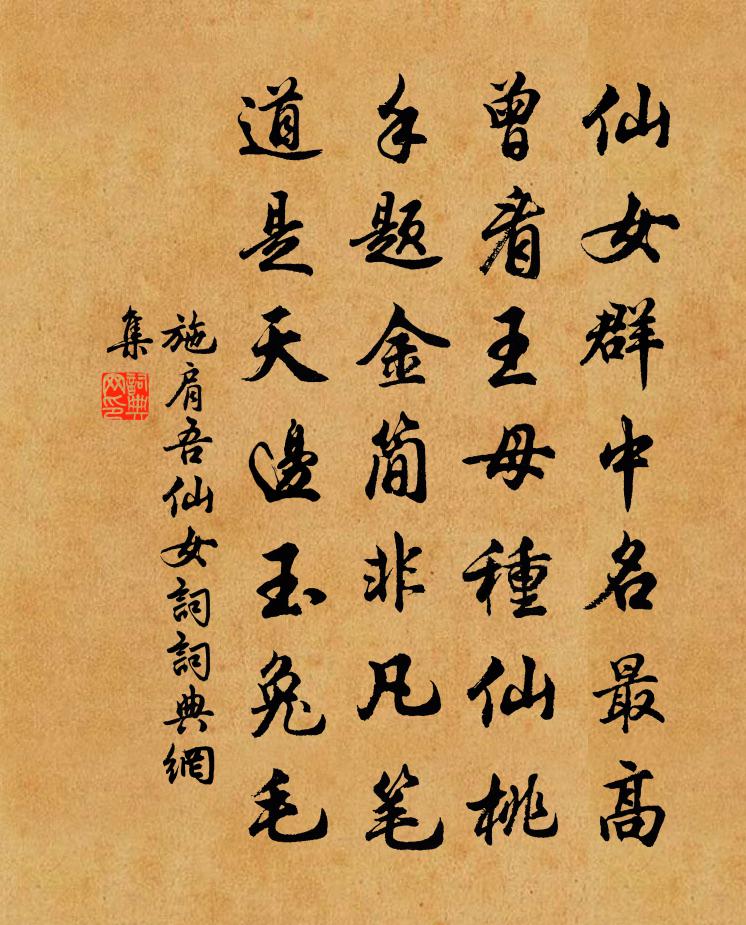 仙女群中名最高
曾看王母種仙桃
手題金简非凡笔
道是天邊玉兔毛
施肩吾仙女詞詞典網
集
詞典
网印